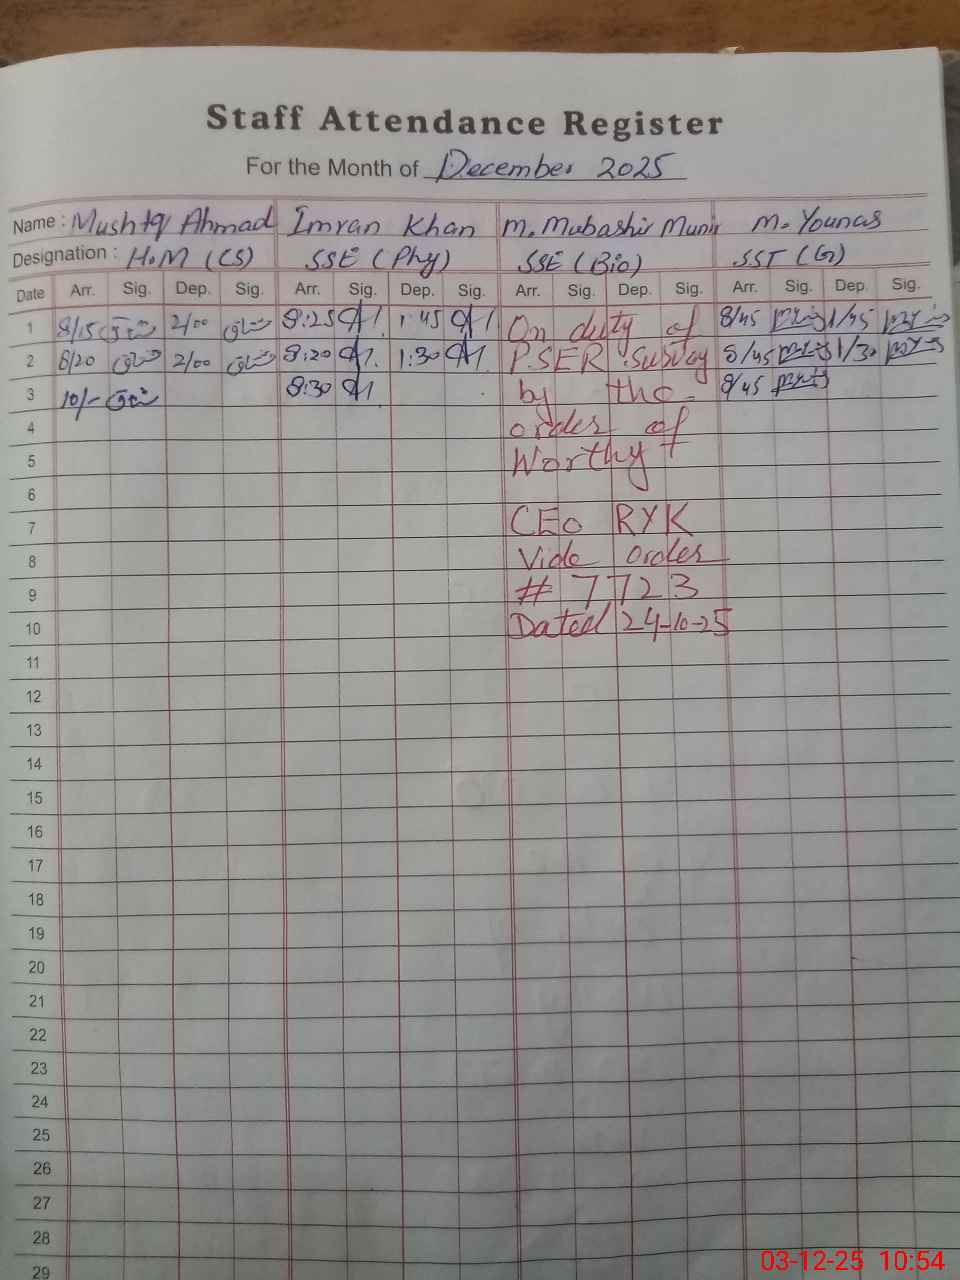 Staff Attendance Register
For the Month of December 2025
Name : Mushtq Ahmad Imran Khan M. Mubashir Munir M. Younas
Designation : H.M (CS) SSE (Phy) SSE (Bio) SST (G)
Date Arr. Sig. Dep. Sig. Arr. Sig. Dep. Sig. Arr. Sig. Dep. Sig. Arr. Sig. Dep. Sig.
1 8/15 مشتاق 2/00 مشتاق 8:25 1:45 On duty of 8/45 1/45
2 8/20 مشتاق 2/00 مشتاق 8:20 1:30 PSER survay 8/45 1/30
3 10/- مشتاق 8:30 by the 8/45
4 order of
5 Worthy
6
7 CEO RYK
8 Vide order
9 # 7723
10 Dated 24-10-25
11
12
13
14
15
16
17
18
19
20
21
22
23
24
25
26
27
28
29
03-12-25 10:54